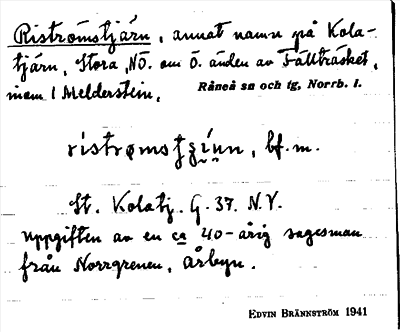 Riströmstjärn, annat namn på Kola-
tjärn, Stora, NÖ. om Ö. änden av Fällträsket,
inom 1 Melderstein.
Råneå sn och tg, Norrb. l.
ristrømstʒi̮nn, bf. m.
St. Kolatj. G. 37. N.V.
Uppgiften av en ca 40-årig sagesman
från Norrgrenen, Årbyn.
EDVIN BRÄNNSTRÖM 1941